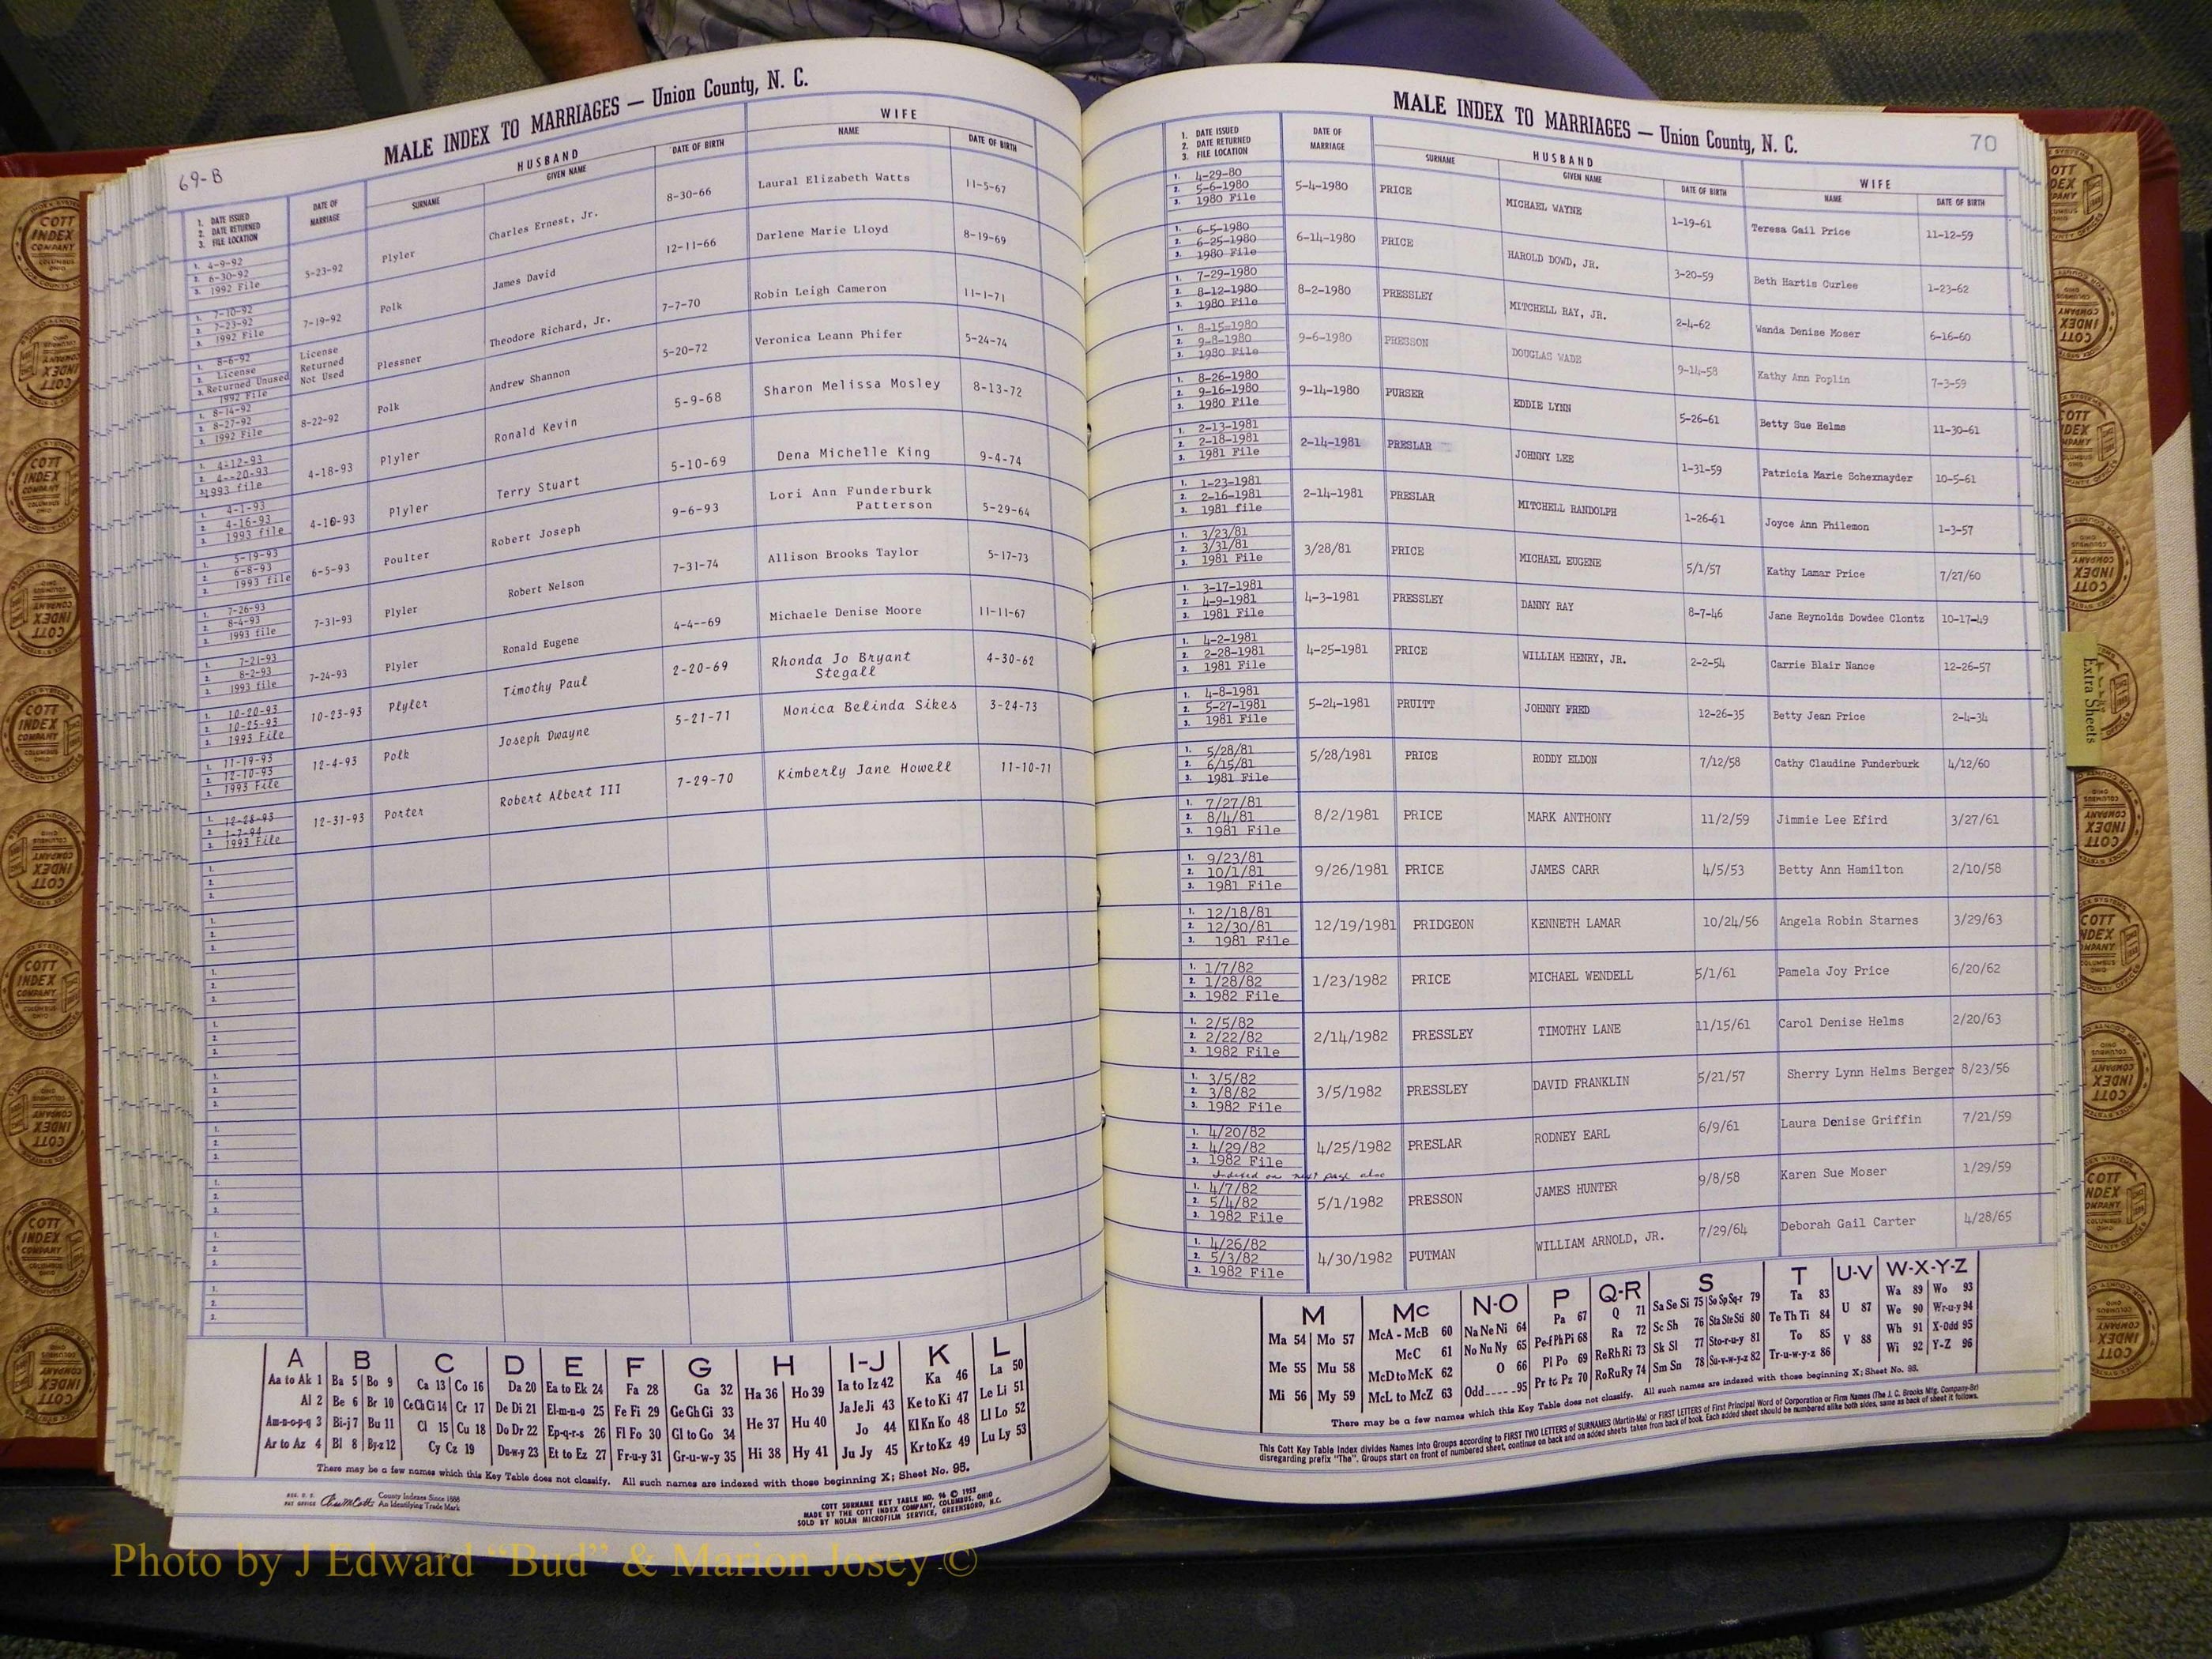 69-B
MALE INDEX TO MARRIAGES — Union County, N. C.
HUSBAND WIFE
1. DATE ISSUED
2. DATE RETURNED
3. FILE LOCATION
DATE OF MARRIAGE SURNAME GIVEN NAME DATE OF BIRTH NAME DATE OF BIRTH
1. 4-9-92
2. 6-30-92
3. 1992 File
5-23-92 Plyler Charles Ernest, Jr. 8-30-66 Laural Elizabeth Watts 11-5-67
1. 7-10-92
2. 7-23-92
3. 1992 File
7-19-92 Polk James David 12-11-66 Darlene Marie Lloyd 8-19-69
1. 8-6-92
2. License
3. Returned Unused
1992 File
License
Returned
Not Used
Plessner Theodore Richard, Jr. 7-7-70 Robin Leigh Cameron 11-1-71
1. 8-14-92
2. 8-27-92
3. 1992 File
8-22-92 Polk Andrew Shannon 5-20-72 Veronica Leann Phifer 5-24-74
1. 4-12-93
2. 4--20-93
3. 1993 file
4-18-93 Plyler Ronald Kevin 5-9-68 Sharon Melissa Mosley 8-13-72
1. 4-1-93
2. 4-16-93
3. 1993 file
4-10-93 Plyler Terry Stuart 5-10-69 Dena Michelle King 9-4-74
1. 5-19-93
2. 6-8-93
3. 1993 file
6-5-93 Poulter Robert Joseph 9-6-93 Lori Ann Funderburk
Patterson 5-29-64
1. 7-26-93
2. 8-4-93
3. 1993 file
7-31-93 Plyler Robert Nelson 7-31-74 Allison Brooks Taylor 5-17-73
1. 7-21-93
2. 8-2-93
3. 1993 file
7-24-93 Plyler Ronald Eugene 4-4--69 Michaele Denise Moore 11-11-67
1. 10-20-93
2. 10-25-93
3. 1993 File
10-23-93 Plyler Timothy Paul 2-20-69 Rhonda Jo Bryant
Stegall 4-30-62
1. 11-19-93
2. 12-10-93
3. 1993 File
12-4-93 Polk Joseph Dwayne 5-21-71 Monica Belinda Sikes 3-24-73
1. 12-28-93
2. 1-7-94
3. 1993 File
12-31-93 Porter Robert Albert III 7-29-70 Kimberly Jane Howell 11-10-71
1.
2.
3.
1.
2.
3.
1.
2.
3.
1.
2.
3.
1.
2.
3.
1.
2.
3.
1.
2.
3.
1.
2.
3.
1.
2.
3.
A B C D E F G H I-J K L
Aa to Ak 1 Ba 5 Bo 9 Ca 13 Co 16 Da 20 Ea to Ek 24 Fa 28 Ga 32 Ha 36 Ho 39 Ia to Iz 42 Ka 46 La 50
Al 2 Be 6 Br 10 Ce Ch Ci 14 Cr 17 De Di 21 El-m-n-o 25 Fe Fi 29 Ge Gh Gi 33 He 37 Hu 40 Ja Je Ji 43 Ke to Ki 47 Le Li 51
Am-n-o-p-q 3 Bi-j 7 Bu 11 Cl 15 Cu 18 Do Dr 22 Ep-q-r-s 26 Fl Fo 30 Gl to Go 34 Hi 38 Hy 41 Jo 44 Kl Kn Ko 48 Ll Lo 52
Ar to Az 4 Bl 8 By-z 12 Cy Cz 19 Du-w-y 23 Et to Ez 27 Fr-u-y 31 Gr-u-w-y 35 Ju Jy 45 Kr to Kz 49 Lu Ly 53
There may be a few names which this Key Table does not classify. All such names are indexed with those beginning X; Sheet No. 95.
REG. U. S.
PAT OFFICE
County Indexes Since 1888
An Identifying Trade Mark
COTT SURNAME KEY TABLE NO. 96 © 1952
MADE BY THE COTT INDEX COMPANY, COLUMBUS, OHIO
SOLD BY NOLAN MICROFILM SERVICE, GREENSBORO, N.C.
MALE INDEX TO MARRIAGES — Union County, N. C.
70
HUSBAND WIFE
1. DATE ISSUED
2. DATE RETURNED
3. FILE LOCATION
DATE OF MARRIAGE SURNAME GIVEN NAME DATE OF BIRTH NAME DATE OF BIRTH
1. 4-29-80
2. 5-6-1980
3. 1980 File
5-4-1980 PRICE MICHAEL WAYNE 1-19-61 Teresa Gail Price 11-12-59
1. 6-5-1980
2. 6-25-1980
3. 1980 File
6-14-1980 PRICE HAROLD DOWD, JR. 3-20-59 Beth Hartis Curlee 1-23-62
1. 7-29-1980
2. 8-12-1980
3. 1980 File
8-2-1980 PRESSLEY MITCHELL RAY, JR. 2-4-62 Wanda Denise Moser 6-16-60
1. 8-15-1980
2. 9-8-1980
3. 1980 File
9-6-1980 PRESSON DOUGLAS WADE 9-14-58 Kathy Ann Poplin 7-3-59
1. 8-26-1980
2. 9-16-1980
3. 1980 File
9-14-1980 PURSER EDDIE LYNN 5-26-61 Betty Sue Helms 11-30-61
1. 2-13-1981
2. 2-18-1981
3. 1981 File
2-14-1981 PRESLAR JOHNNY LEE 1-31-59 Patricia Marie Schexnayder 10-5-61
1. 1-23-1981
2. 2-16-1981
3. 1981 file
2-14-1981 PRESLAR MITCHELL RANDOLPH 1-26-61 Joyce Ann Philemon 1-3-57
1. 3/23/81
2. 3/31/81
3. 1981 File
3/28/81 PRICE MICHAEL EUGENE 5/1/57 Kathy Lamar Price 7/27/60
1. 3-17-1981
2. 4-9-1981
3. 1981 File
4-3-1981 PRESSLEY DANNY RAY 8-7-46 Jane Reynolds Dowdee Clontz 10-17-49
1. 4-2-1981
2. 2-28-1981
3. 1981 File
4-25-1981 PRICE WILLIAM HENRY, JR. 2-2-54 Carrie Blair Nance 12-26-57
1. 4-8-1981
2. 5-27-1981
3. 1981 File
5-24-1981 PRUITT JOHNNY FRED 12-26-35 Betty Jean Price 2-4-34
1. 5/28/81
2. 6/15/81
3. 1981 File
5/28/1981 PRICE RODDY ELDON 7/12/58 Cathy Claudine Funderburk 4/12/60
1. 7/27/81
2. 8/4/81
3. 1981 File
8/2/1981 PRICE MARK ANTHONY 11/2/59 Jimmie Lee Efird 3/27/61
1. 9/23/81
2. 10/1/81
3. 1981 File
9/26/1981 PRICE JAMES CARR 4/5/53 Betty Ann Hamilton 2/10/58
1. 12/18/81
2. 12/30/81
3. 1981 File
12/19/1981 PRIDGEON KENNETH LAMAR 10/24/56 Angela Robin Starnes 3/29/63
1. 1/7/82
2. 1/28/82
3. 1982 File
1/23/1982 PRICE MICHAEL WENDELL 5/1/61 Pamela Joy Price 6/20/62
1. 2/5/82
2. 2/22/82
3. 1982 File
2/14/1982 PRESSLEY TIMOTHY LANE 11/15/61 Carol Denise Helms 2/20/63
1. 3/5/82
2. 3/8/82
3. 1982 File
3/5/1982 PRESSLEY DAVID FRANKLIN 5/21/57 Sherry Lynn Helms Berger 8/23/56
1. 4/20/82
2. 4/29/82
3. 1982 File
4/25/1982 PRESLAR RODNEY EARL 6/9/61 Laura Denise Griffin 7/21/59
Indexed on next page also
1. 4/7/82
2. 5/4/82
3. 1982 File
5/1/1982 PRESSON JAMES HUNTER 9/8/58 Karen Sue Moser 1/29/59
1. 4/26/82
2. 5/3/82
3. 1982 File
4/30/1982 PUTMAN WILLIAM ARNOLD, JR. 7/29/64 Deborah Gail Carter 4/28/65
M Mc N-O P Q-R S T U-V W-X-Y-Z
Ma 54 Mo 57 McA - McB 60 Na Ne Ni 64 Pa 67 Q 71 Sa Se Si 75 So Sp Sq-r 79 Ta 83 U 87 Wa 89 Wo 93
Me 55 Mu 58 McC 61 No Nu Ny 65 Pe-f Ph Pi 68 Ra 72 Sc Sh 76 Sta Ste Sti 80 Te Th Ti 84 V 88 We 90 Wr-u-y 94
Mi 56 My 59 McD to McK 62 O 66 Pl Po 69 Re Rh Ri 73 Sk Sl 77 Sto-r-u-y 81 To 85 Wh 91 X-Odd 95
McL to McZ 63 Odd 95 Pr to Pz 70 Ro Ru Ry 74 Sm Sn 78 Su-v-w-y-z 82 Tr-u-w-y-z 86 Wi 92 Y-Z 96
There may be a few names which this Key Table does not classify. All such names are indexed with those beginning X; Sheet No. 95.
This Cott Key Table Index divides Names Into Groups according to FIRST TWO LETTERS of SURNAMES (Martin-Ma) or FIRST LETTERS of First Principal Word of Corporation or Firm Names (The J. C. Brooks Mfg. Company-Br)
disregarding prefix "The". Groups start on front of numbered sheet, continue on back and on added sheets taken from back of book. Each added sheet should be numbered alike both sides, same as back of sheet it follows.
Extra Sheets
COTT INDEX COMPANY COLUMBUS OHIO
Photo by J Edward "Bud" & Marion Josey ©